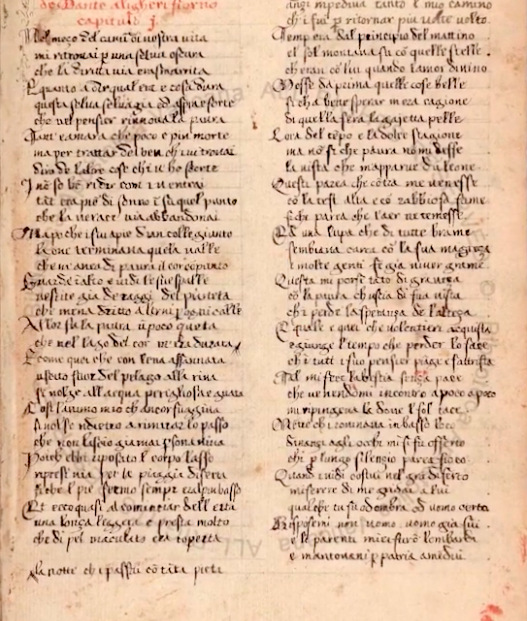 de Dante Aligheri fiorno
capitulo j.
Nel meço del cami di nostra uita
mi ritrouai p una selua oscura
che la diritta uia era smarrita
Equanto a dir qual era e cosa dura
questa selua seluagia ed aspra e forte
che nel pensier rinnoua la paura
Tant e amara che poco e piu morte
ma per trattar del ben ch i ui trouai
diro de laltre cose ch i u ho scorte
I no so be ridir com i u entrai
tāt era pie di sonno
che la uerace uia abbandonai
Ma po che fui a pie dun colle giunto
la oue terminaua quela ualle
che m auea di paura il cor compunto
Guardai i alto e uidi le sue spalle
uestite gia de raggi del pianeta
che mena dritto altrui p ogni calle
Allor fu la paura ū poco queta
che nel lago del cor m era durata
E come quei che con lena affannata
uscito fuor del pelago alla riua
se uolge all acqua perigliosa e guata
Cosi l animo mio ch ancor fuggiua
si uolse ndietro a rimirar lo passo
che non lascio giamai psona uiua
Poi ch ebbi riposato il corpo lasso
ripresi uia per la piaggia diserta
si che l pie fermo sempr era l piu basso
Et ecco quasi al cominciar dell erta
una lonça leggera e presta molto
che di pel maculato era coperta
la notte ch i passai cō tāta pieta
anzi mpediua tanto l mio camino
ch i fui p ritornar piu uolte uolto
Temp era dal principio del mattino
e l sol montaua su cō quelle stelle
ch eran cō lui quando l amor diuino
Mosse da prima quelle cose belle
si ch a bene sperar m era cagione
di quella fera la gaietta pelle
L ora del tēpo e la dolce stagione
ma nō si che paura nō mi desse
la uista che m apparue dū leone
Questi parea che cōtra me uenesse
cō la test alta e cō rabbiosa fame
si che parea che l aer ne temesse
Ed una lupa che di tutte brame
sembiaua carca cō la sua magreza
e molte genti fe gia uiuer grame
Questa mi porse tāto di graueza
cō la paura ch uscia di sua uista
ch i perde la speranza de l alteza
E quale e quei che uolentieri acquista
e giunge l tempo che perder lo face
ch i tutt i suo pensier piange e s attrista
Tal mi fece la bestia senza pace
che uenendomi incontro a poco a poco
mi ripingeua la doue l sol tace
Mentre ch i rouinaua in basso loco
dinanzi agli occhi mi si fu offerto
chi p lungo silenzio parea fioco
Quand i uidi costui nel grā diserto
miserere di me gridai a lui
qual che tu sii od ombra od uomo certo
Risposemi non uomo uomo gia fui
e li parenti miei furō lombardi
e mantouani p patria amedui